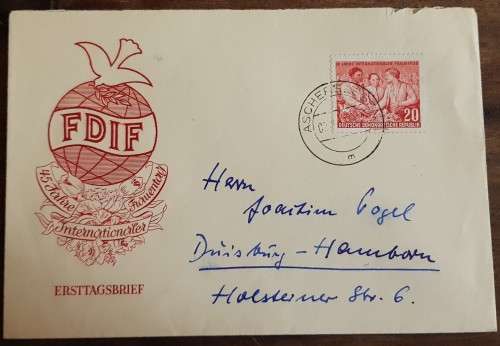 FDIF
45 Jahre
Internationaler
Frauentag
ERSTTAGSBRIEF
INTERNATIONALER FRAUENTAG
20
DEUTSCHE DEMOKRATISCHE REPUBLIK
ASCHERS
Herrn
Joachim Vogel
Duisburg - Hamborn
Holsteiner Str. 6.